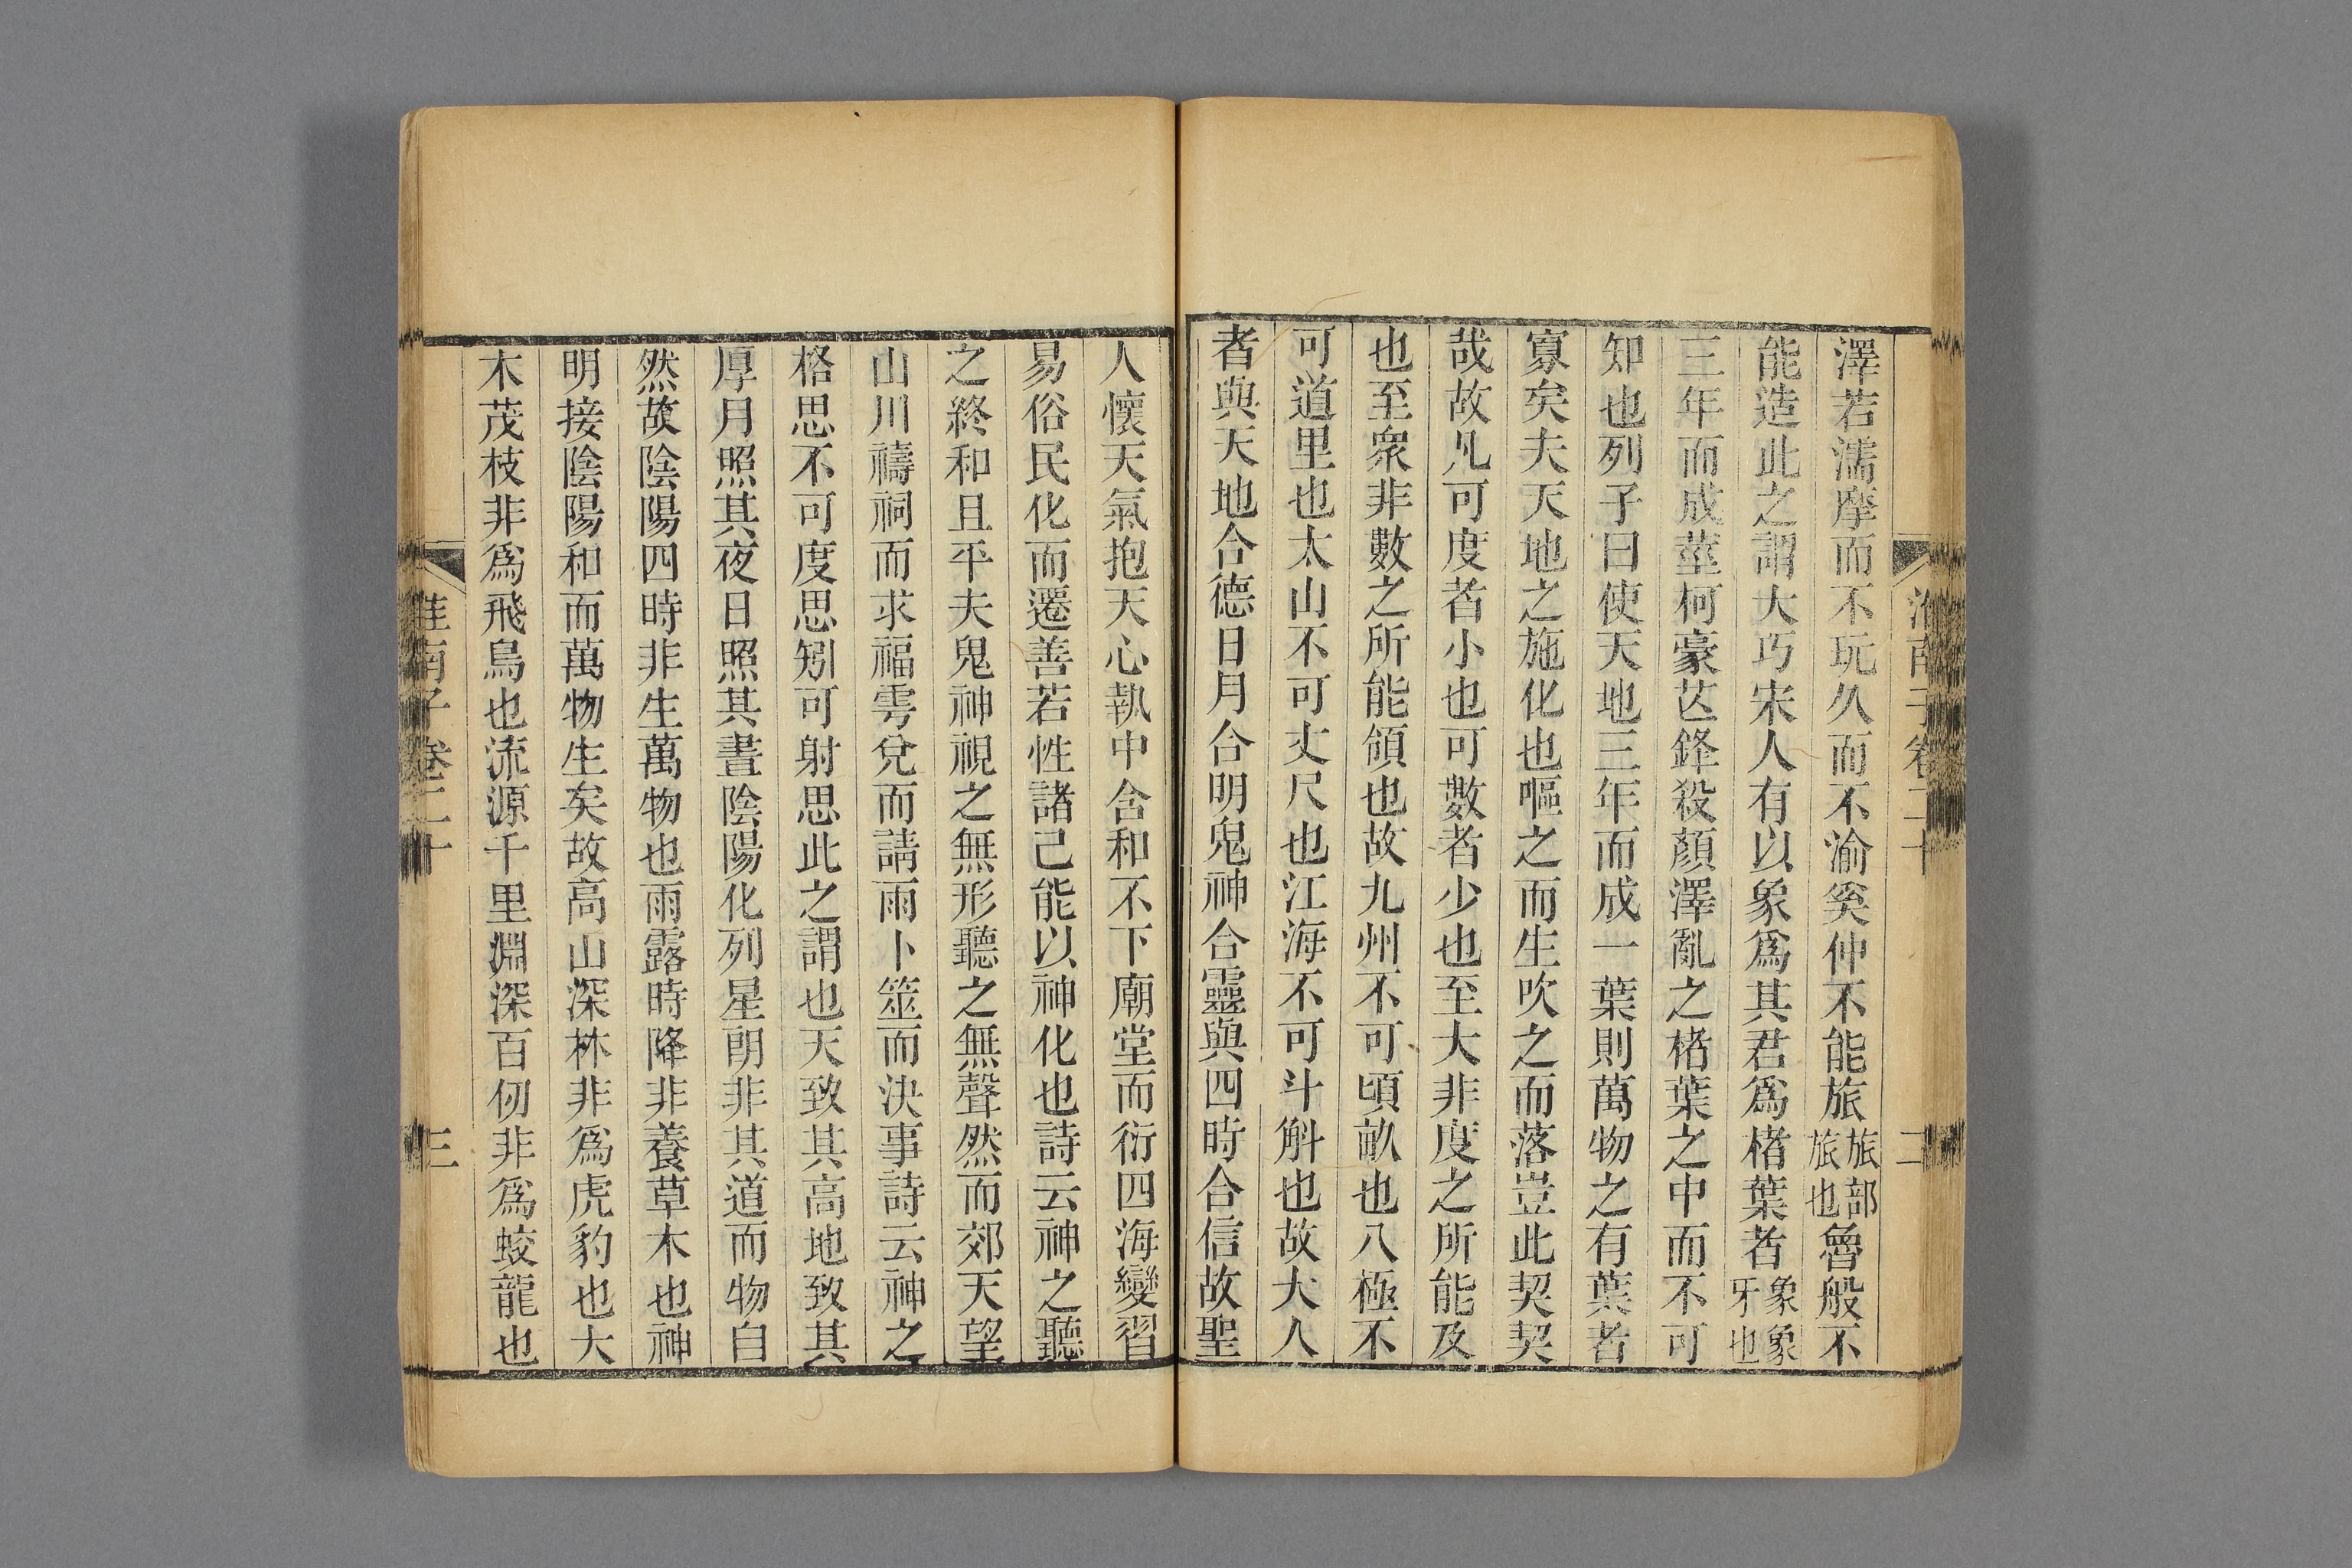 淮南子卷二十
二
澤若濡摩而不玩久而不渝奚仲不能旅旅部旅也魯般不
能造此之謂大巧宋人有以象爲其君爲楮葉者象象牙也
三年而成莖柯豪芒鋒殺顏澤亂之楮葉之中而不可
知也列子曰使天地三年而成一葉則萬物之有葉者
寡矣夫天地之施化也嘔之而生吹之而落豈此契契
哉故凡可度者小也可數者少也至大非度之所能及
也至衆非數之所能領也故九州不可頃畝也八極不
可道里也太山不可丈尺也江海不可斗斛也故大人
者與天地合德日月合明鬼神合靈與四時合信故聖
人懷天氣抱天心執中含和不下廟堂而衍四海變習
易俗民化而遷善若性諸己能以神化也詩云神之聽
之終和且平夫鬼神視之無形聽之無聲然而郊天望
山川禱祠而求福雩兌而請雨卜筮而決事詩云神之
格思不可度思矧可射思此之謂也天致其高地致其
厚月照其夜日照其晝陰陽化列星朗非其道而物自
然故陰陽四時非生萬物也雨露時降非養草木也神
明接陰陽和而萬物生矣故高山深林非爲虎豹也大
木茂枝非爲飛鳥也流源千里淵深百仞非爲蛟龍也
淮南子卷二十
三